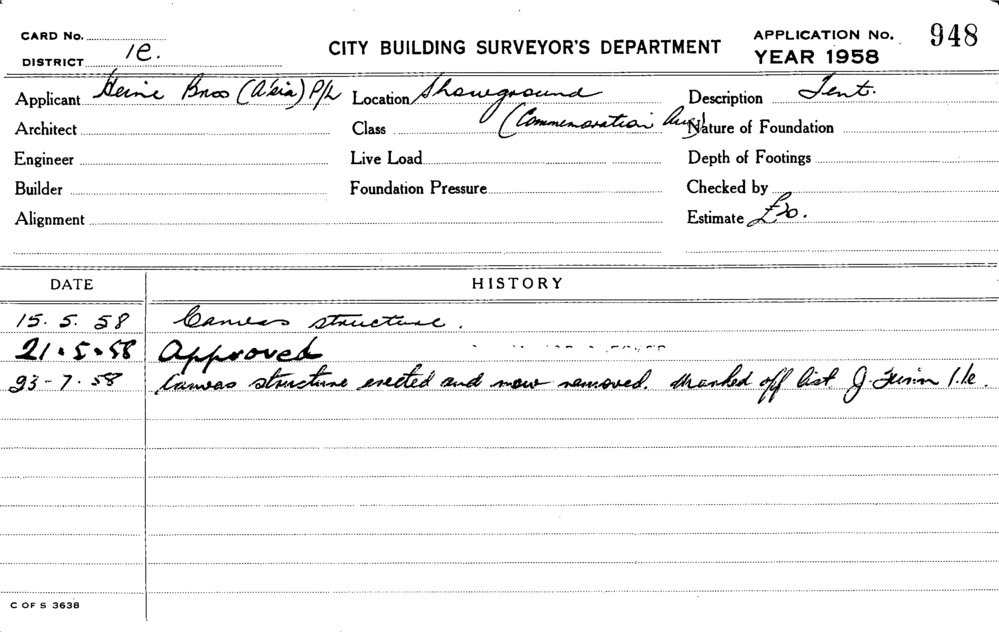 CARD No.
DISTRICT 1e.
CITY BUILDING SURVEYOR'S DEPARTMENT
APPLICATION No. 948
YEAR 1958
Applicant Heine Bros (A'sia) P/L Location Showground Description Tent.
Architect Class (Commemoration Nature of Foundation
Engineer Live Load Depth of Footings
Builder Foundation Pressure Checked by
Alignment Estimate £20.
DATE HISTORY
15. 5. 58 Canvas structure.
21.5.58 Approved
23-7.58 Canvas structure erected and now removed. Marked off list J. 1.1e.
C OF S 3638